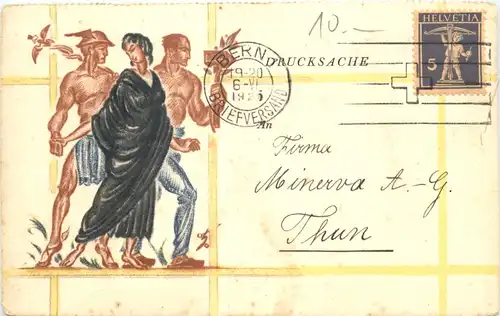 10.—
HELVETIA
5
DRUCKSACHE
BERN
19-20
6-VI
BRIEFVERSAND
An
Firma
Minerva A.-G.
Thun